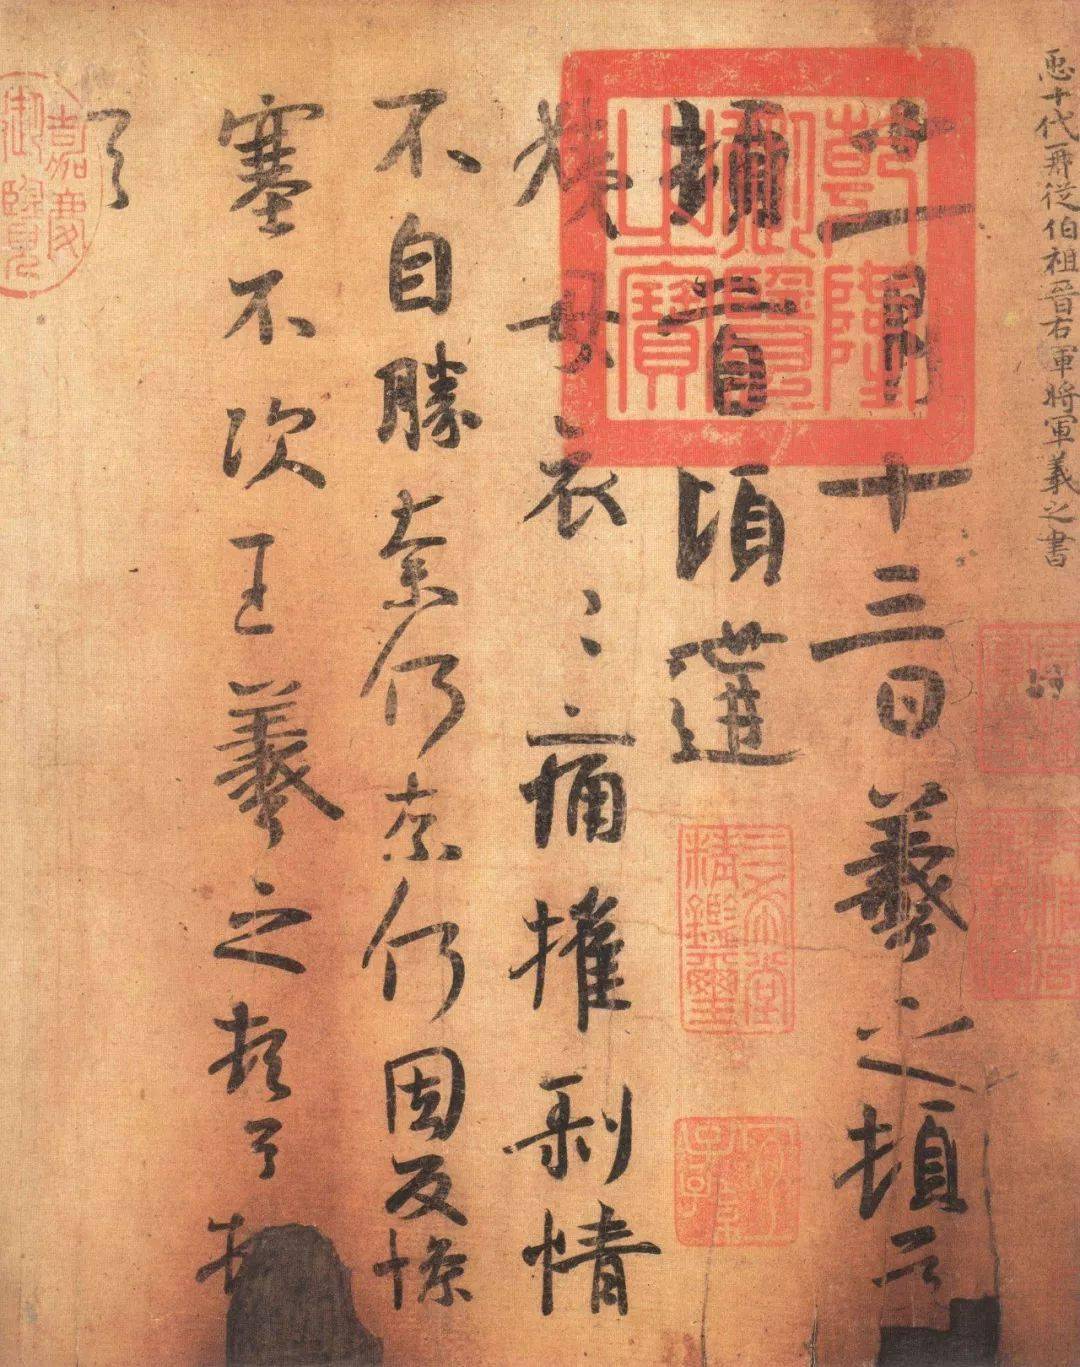 臣十代再從伯祖晉右軍將軍羲之書
十一月十三日羲之頓首
頓首頃遘
姨母哀〻痛摧剥情
不自勝奈何奈何因反慘
塞不次王羲之頓首頓
首
乾隆御覽之寶
三希堂精鑑璽
宜子孫
嘉慶御覽